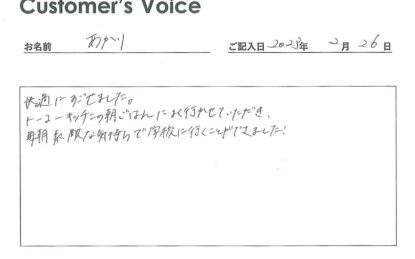 Customer's Voice
お名前 あかり ご記入日 2023年 2月 26日
快適にすごせました。
トーコーキッチンの朝ごはんによく行かせていただき、
毎朝素敵な気持ちで学校に行くことができました!